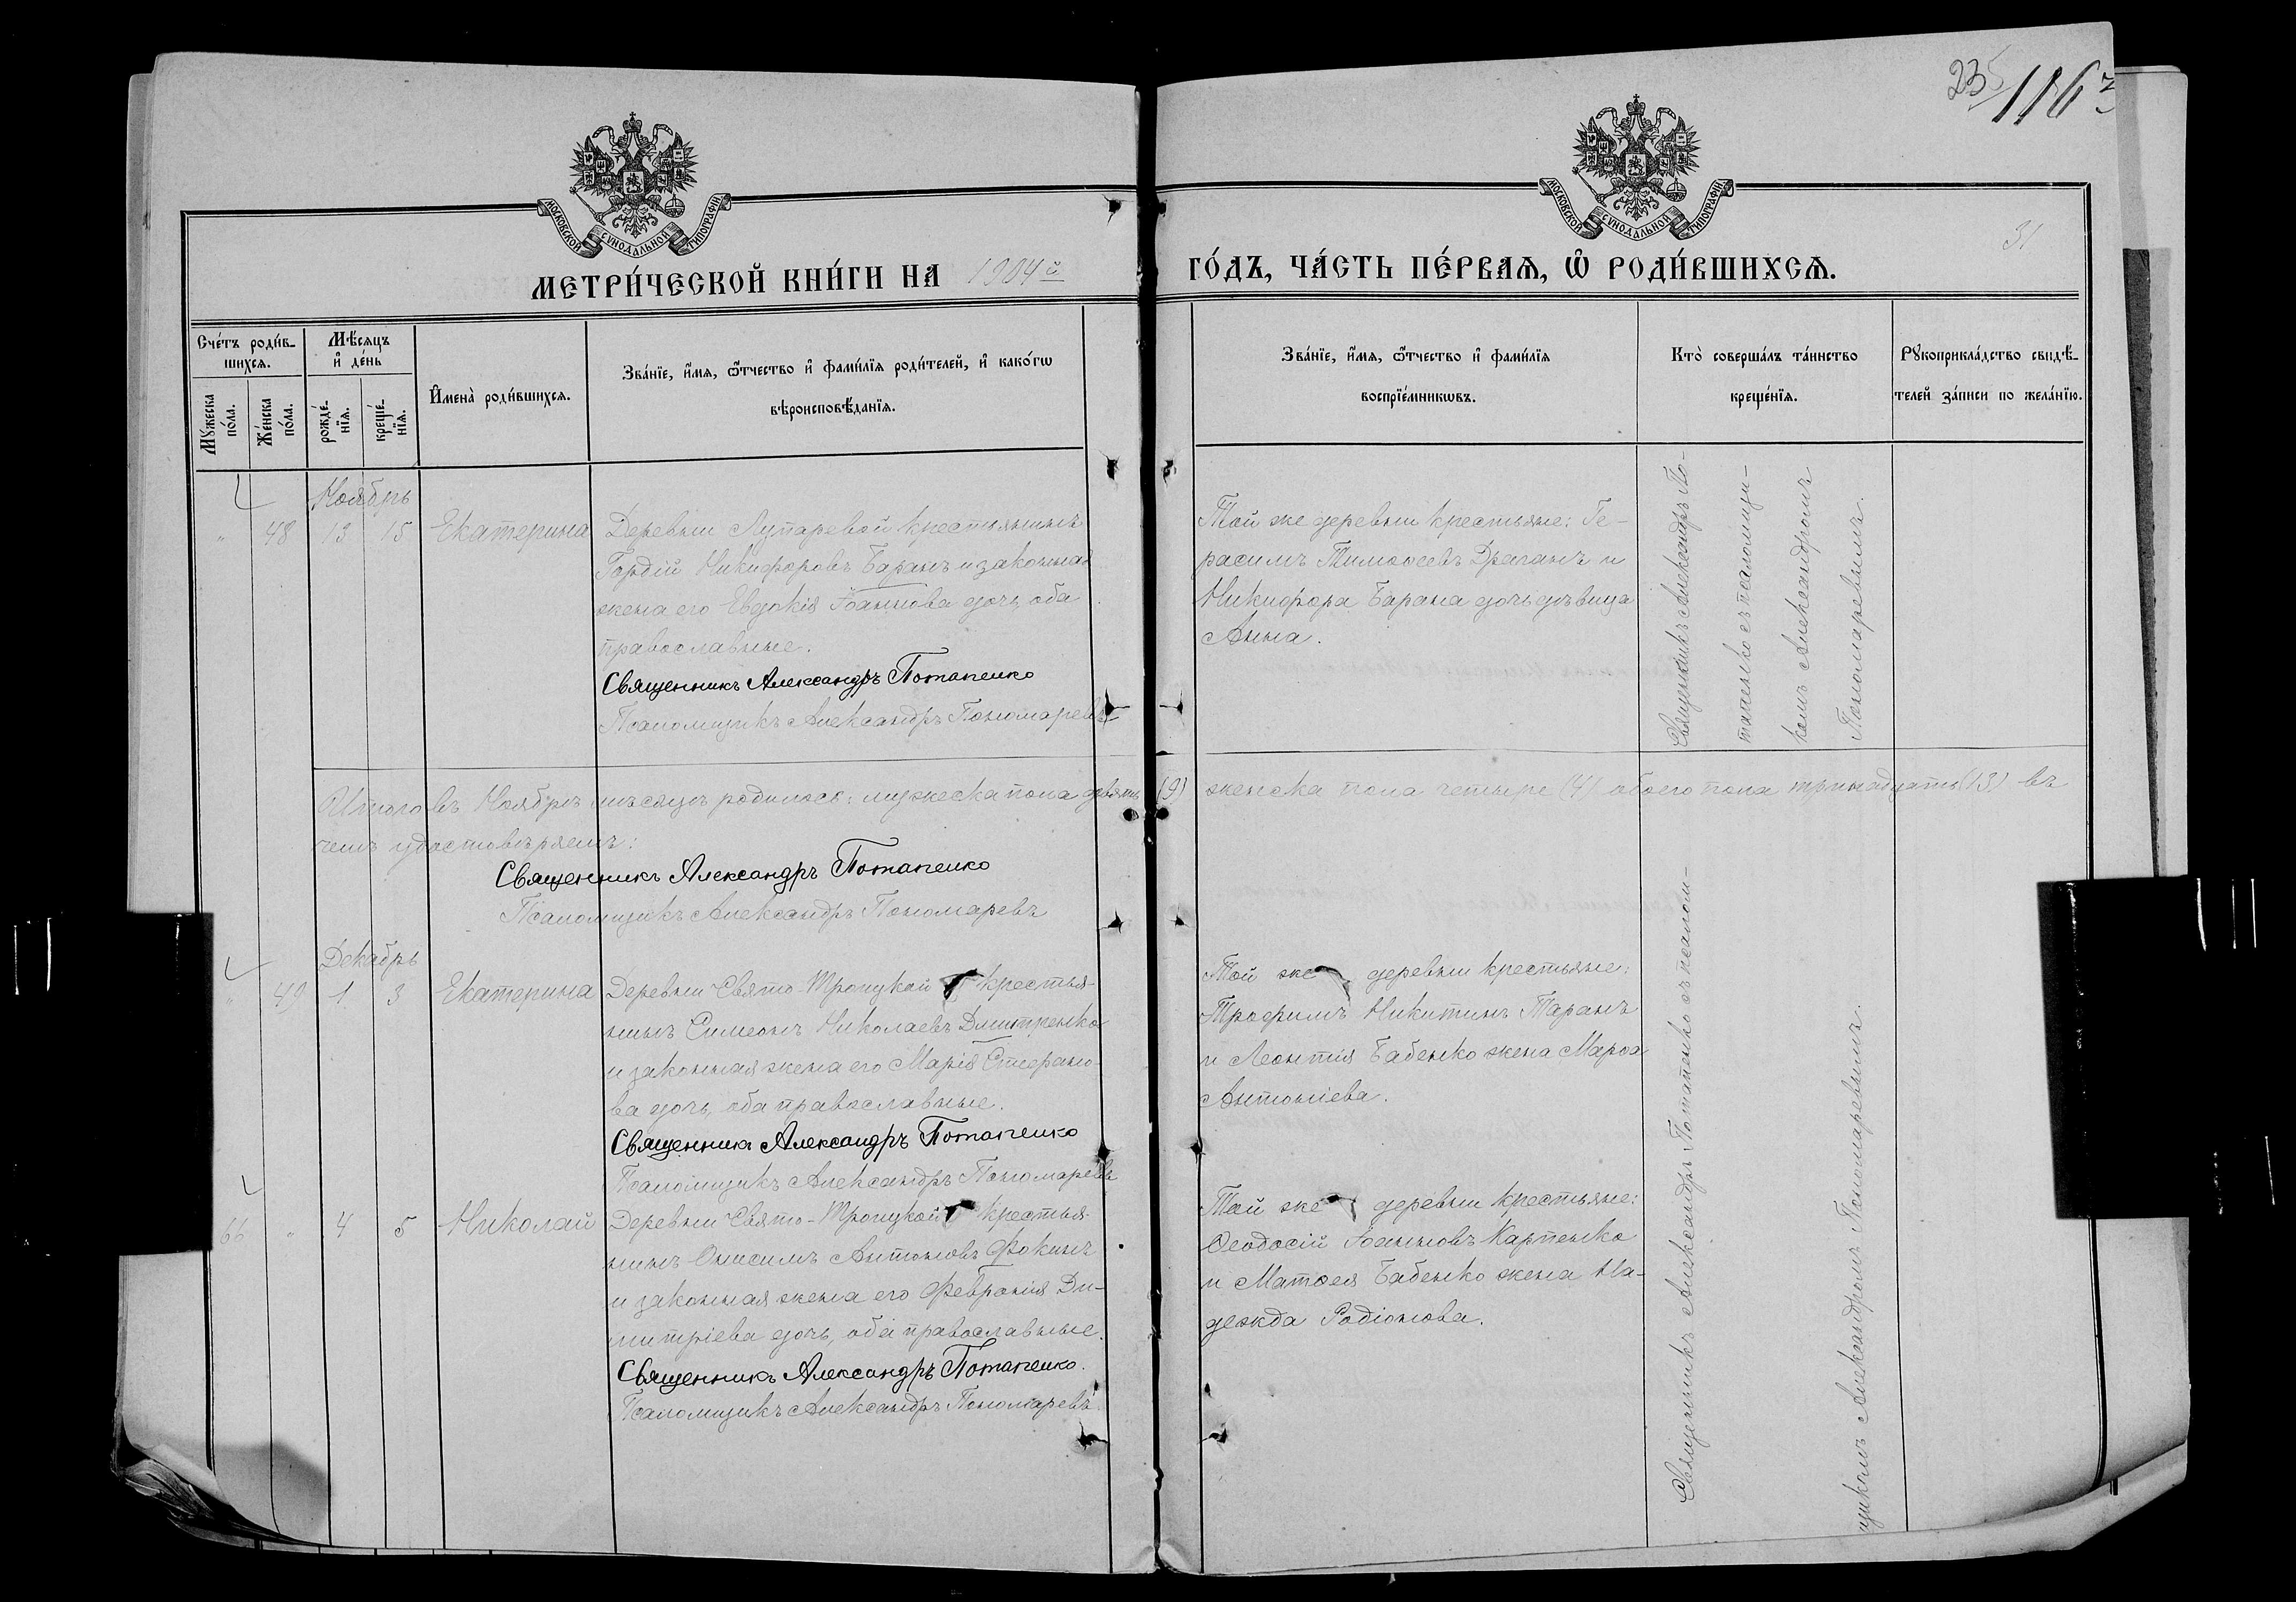 235
1163
МОСКОВСКОЙ СУНОДАЛЬНОЙ ТИПОГРАФІИ
МОСКОВСКОЙ СУНОДАЛЬНОЙ ТИПОГРАФІИ
31
МЕТРИ́ЧЕСКОЙ КНИ́ГИ НА 1904й ГО́ДЪ, ЧА́СТЬ ПЕ́РВАѦ, Ѡ҆ РОДИ́ВШИХСѦ.
Сче́тъ роди́в-
шихсѧ.
Мꙋ́жеска по́ла.
Же́нска по́ла.
Мѣ́сѧцъ и҆ де́нь
рожде́-
нїѧ.
креще́-
нїѧ.
И҆мена̀ роди́вшихсѧ.
Зва́нїе, и҆́мѧ, ѻ҆́тчество и҆ фами́лїѧ роди́телей, и҆ како́гѡ
вѣроисповѣ́данїѧ.
Зва́нїе, и҆́мѧ, ѻ҆́тчество и҆ фами́лїѧ
воспрїе́мникѡвъ.
Кто̀ соверша́лъ та́инство
креще́нїѧ.
Рꙋкоприкла́дство свидѣ́-
телей за́писи по жела́нїю.
Ноябрь
" 48 13 15 Екатерина
Деревни Лупаревой крестьянинъ
Гордій Никифоровъ Баранъ и законная
жена его Евдокія Іоаннова дочь, оба
православные.
Священникъ Александръ Потапенко
Псаломщикъ Александръ Пономаревъ
Той же деревни крестьяне: Ге-
расимъ Тимоѳеевъ Драганъ и
Никифора Барана дочь дѣвица
Анна.
Священникъ Александръ По-
тапенко съ псаломщи-
комъ Александромъ
Пономаревымъ.
Итого въ Ноябрѣ мѣсяцѣ родилось: мужеска пола девять (9) женска пола четыре (4) обоего пола тринадцать (13) въ
чемъ удостовѣряемъ:
Священникъ Александръ Потапенко
Псаломщикъ Александръ Пономаревъ
Декабрь
" 49 1 3 Екатерина
Деревни Свято-Троицкой крестья-
нинъ Симеонъ Николаевъ Дмитренко
и законная жена его Марія Стефано-
ва дочь, оба православные.
Священникъ Александръ Потапенко
Псаломщикъ Александръ Пономаревъ
Той же деревни крестьяне:
Трофимъ Никитинъ Таранъ
и Леонтія Бабенко жена Марѳа
Антоніева.
66 " 4 5 Николай
Деревни Свято-Троицкой крестья-
нинъ Онисимъ Антоновъ Фокинъ
и законная жена его Февронія Ди-
митріева дочь, оба православные.
Священникъ Александръ Потапенко.
Псаломщикъ Александръ Пономаревъ.
Той же деревни крестьяне:
Ѳеодосій Іоанновъ Карпенко
и Матѳея Бабенко жена На-
дежда Родіонова.
Священникъ Александръ Потапенко съ псалом-
щикомъ Александромъ Пономаревымъ.